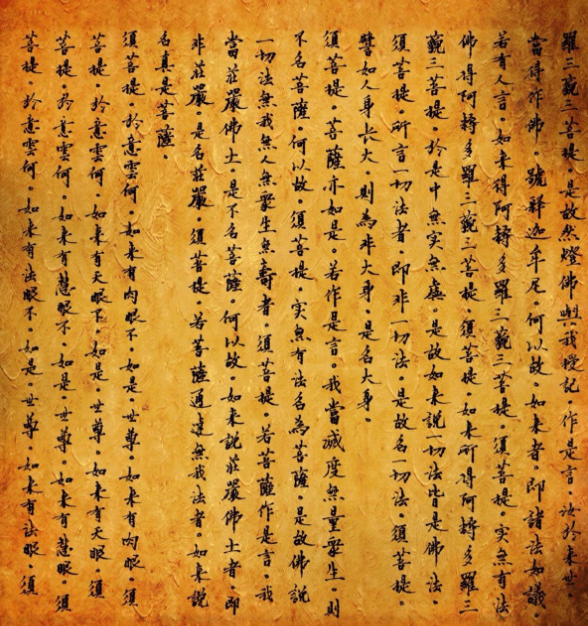 羅三藐三菩提。是故然燈佛與我授記。作是言。汝於來世。
當得作佛。號釋迦牟尼。何以故。如來者。即諸法如議。
若有人言。如來得阿耨多羅三藐三菩提。須菩提。實無有法
佛得阿耨多羅三藐三菩提。須菩提。如來所得阿耨多羅三
藐三菩提。於是中無實無虛。是故如來說一切法皆是佛法。
須菩提。所言一切法者。即非一切法。是故名一切法。須菩提。
譬如人身長大。則為非大身。是名大身。
須菩提。菩薩亦如是。若作是言。我當滅度無量眾生。則
不名菩薩。何以故。須菩提。實無有法名為菩薩。是故佛說
一切法無我無人無眾生無壽者。須菩提。若菩薩作是言。我
當莊嚴佛土。是不名菩薩。何以故。如來說莊嚴佛土者。即
非莊嚴。是名莊嚴。須菩提 若菩薩通達無我法者。如來說
名真是菩薩。
須菩提。於意雲何。如來有肉眼不。如是。世尊。如來有肉眼。須
菩提。於意雲何。如來有天眼不。如是。世尊。如來有天眼 須
菩提。於意雲何。如來有慧眼不。如是。世尊。如來有慧眼。須
菩提。於意雲何。如來有法眼不。如是。世尊。如來有法眼。須